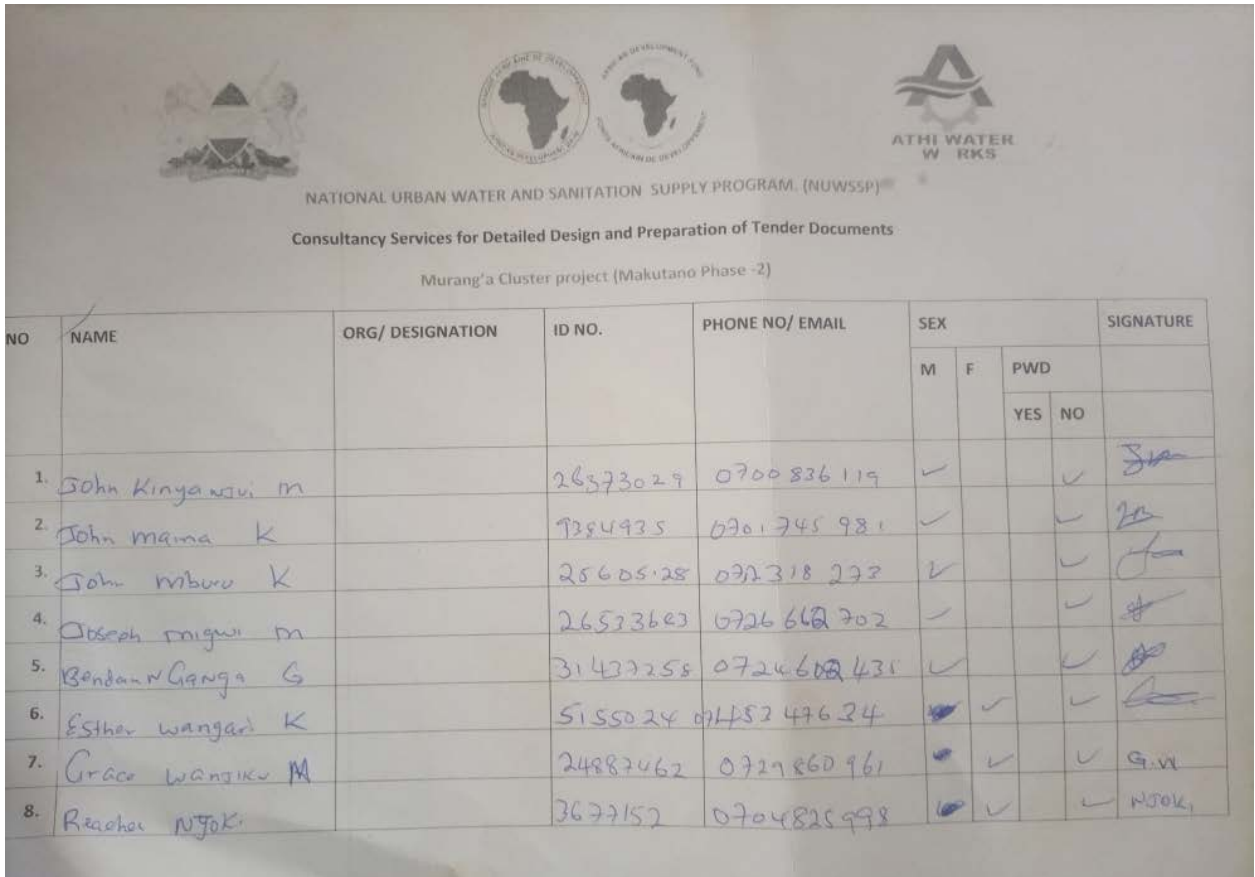 ATHI WATER
W RKS
NATIONAL URBAN WATER AND SANITATION SUPPLY PROGRAM. (NUWSSP)
Consultancy Services for Detailed Design and Preparation of Tender Documents
Murang'a Cluster project (Makutano Phase -2)
NO NAME ORG/ DESIGNATION ID NO. PHONE NO/ EMAIL SEX SIGNATURE
M F PWD
YES NO
1. John Kinyanjui m 26373029 0700 836 119 ✓ ✓
2. John maina K 9384935 0701 745 981 ✓ ✓
3. John mburu K 25605128 ✓ ✓
4. Joseph migwi m ✓ ✓
5. NGanga G 31437255 ✓ ✓
6. Esther wangari K 5155024 ✓ ✓
7. Grace wanjiku M 24887462 0729 860 961 ✓ ✓ G.W
8. NJoki 3677152 0704825998 ✓ ✓ NJOKI